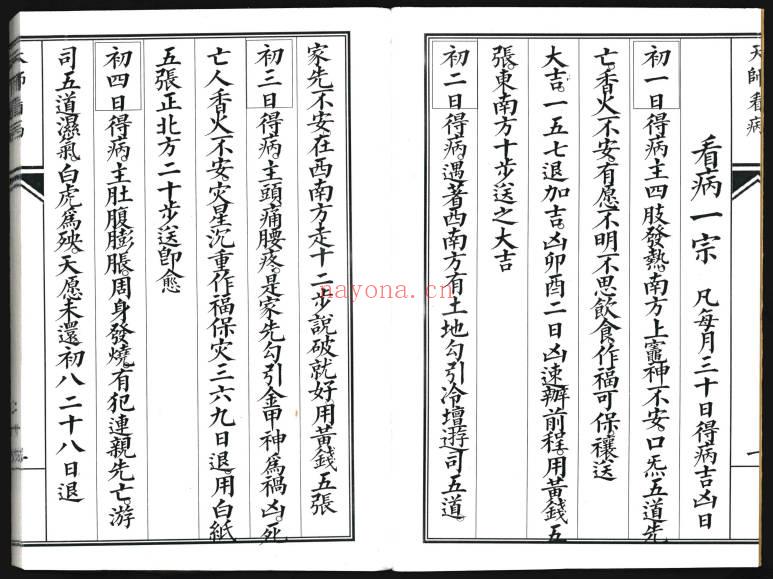 天師看病
看病一宗 凡每月三十日得病吉凶日
初一日得病主四肢發熱。南方上竈神不安。口炁五道先
亡。香火不安。有愿不明不思飲食。作福可保。禳送
大吉。一五七退加吉。凶卯酉二日凶。速辦前程。用黃錢五
張。東南方十步送之大吉
初二日得病。遇著西南方有土地勾引冷壇遊司五道。
家先不安在西南方走十二步說破就好用黃錢五張
初三日得病。主頭痛腰疼。是家先勾引金甲神爲禍凶。死
亡人香火不安。灾星沉重作福保灾三六九日退。用白紙
五張正北方二十步送卽愈
初四日得病。主肚腹膨脹。周身發燒。有犯連親先亡。游
司五道濕氣。白虎爲殃。天愿未還初八二十八日退
天師看病
一
nayona.cn